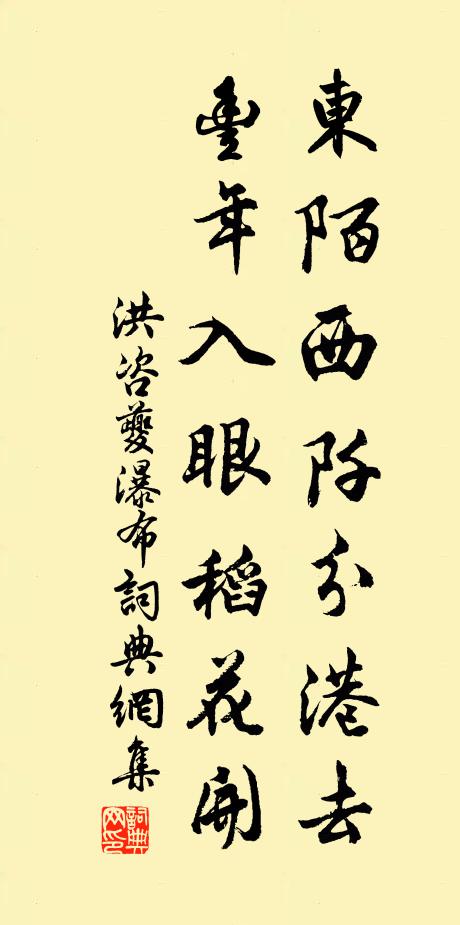 東陌西阡分港去
豐年入眼稻花開
洪咨夔瀑布詞典網集
詞典網印